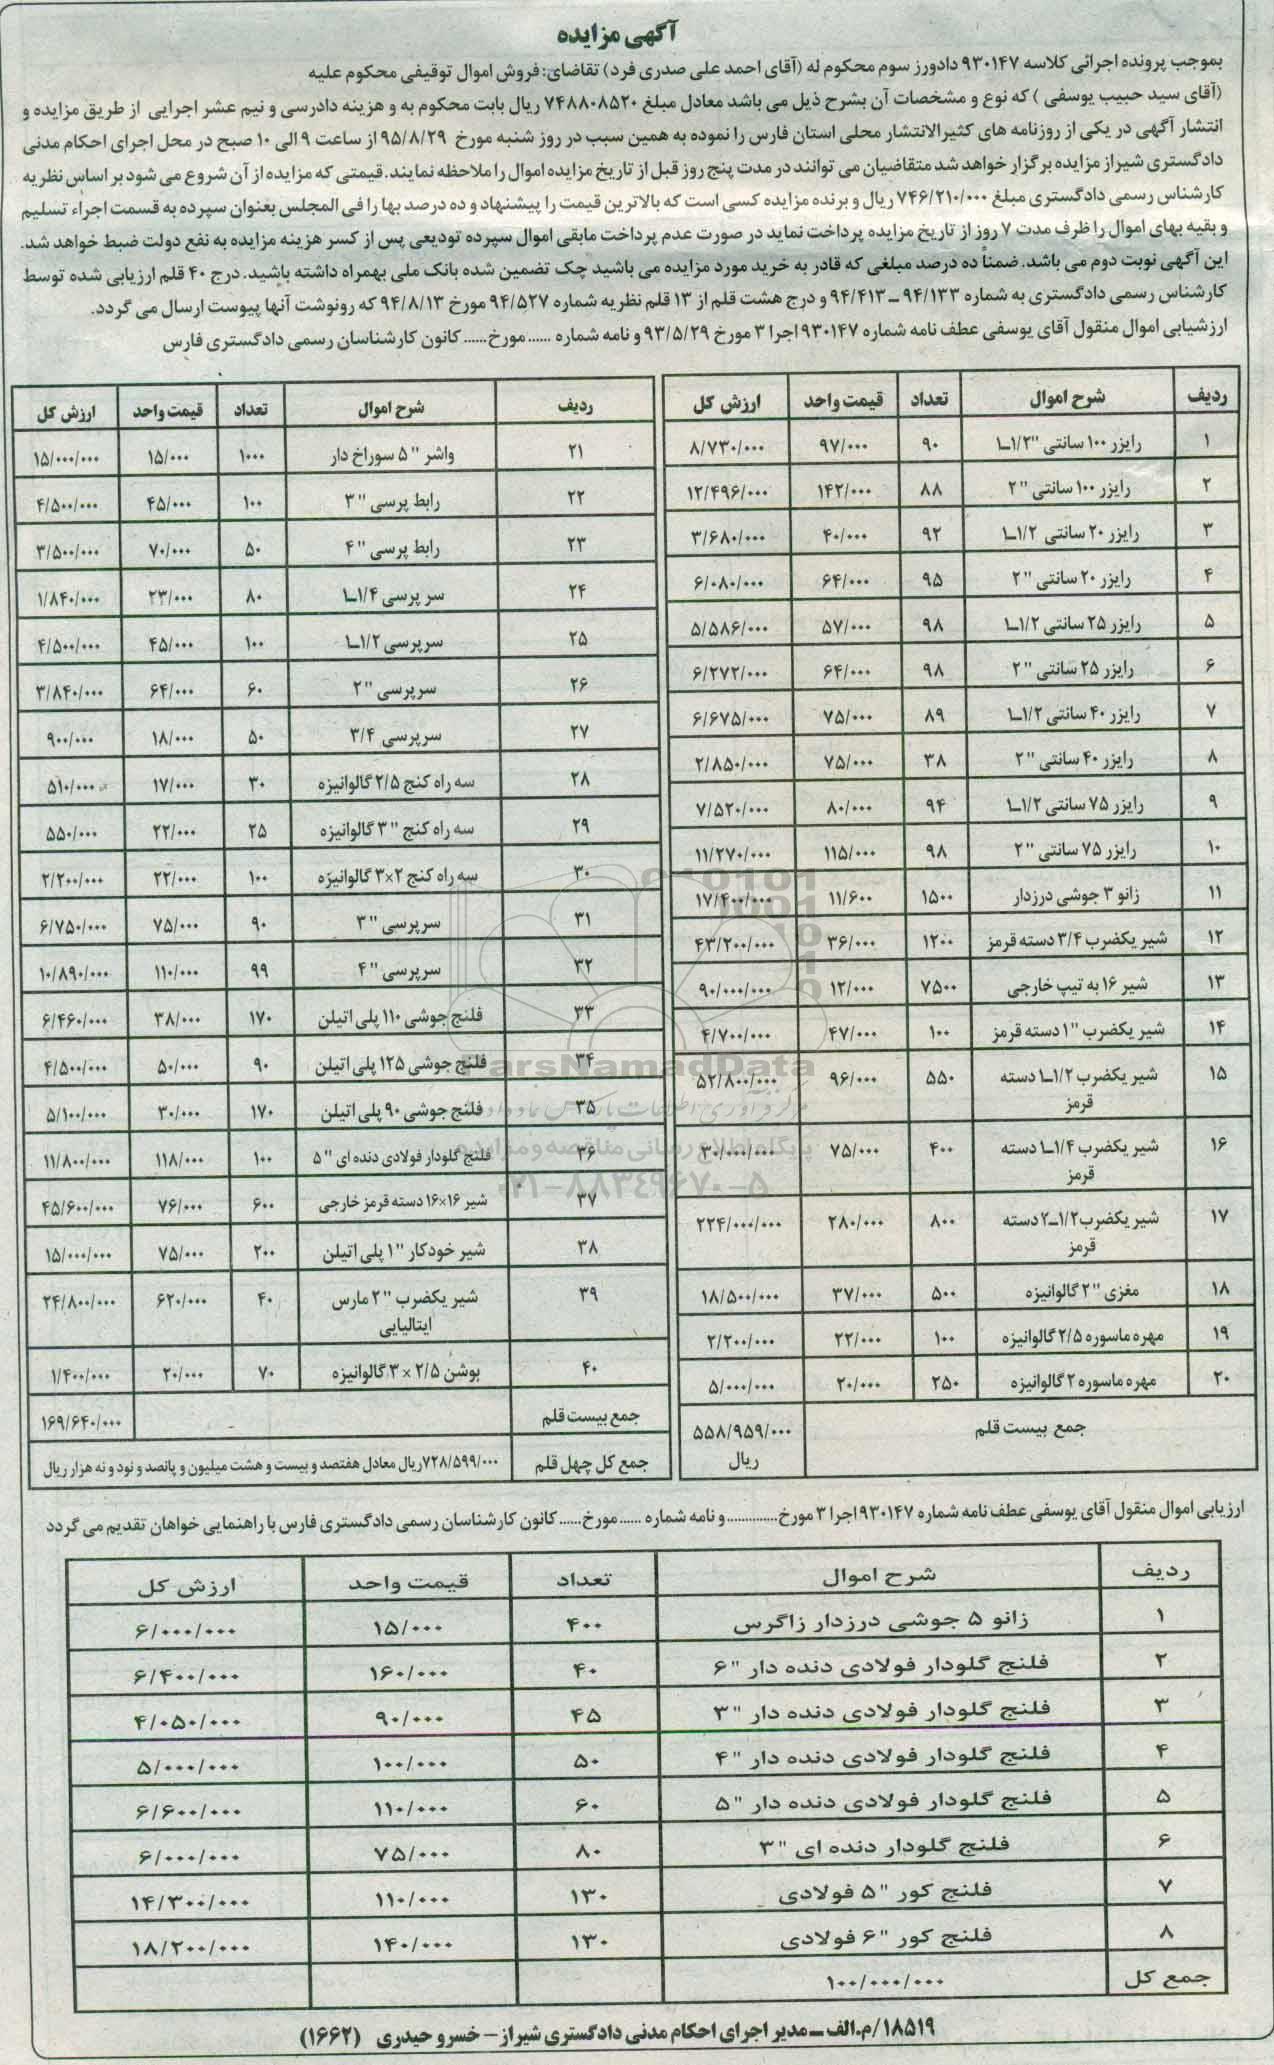 آگهی مزایده
بموجب پرونده اجرائی کلاسه ۹۳۰۱۴۷ دادورز سوم محکوم له (آقای احمد علی صدری فرد) تقاضای: فروش اموال توقیفی محکوم علیه
(آقای سید حبیب یوسفی ) که نوع و مشخصات آن بشرح ذیل می باشد معادل مبلغ ۷۴۸۸۰۸۵۲۰ ریال بابت محکوم به و هزینه دادرسی و نیم عشر اجرایی از طریق مزایده و
انتشار آگهی در یکی از روزنامه های کثیرالانتشار محلی استان فارس را نموده به همین سبب در روز شنبه مورخ ۹۵/۸/۲۹ از ساعت ۹ الی ۱۰ صبح در محل اجرای احکام مدنی
دادگستری شیراز مزایده برگزار خواهد شد متقاضیان می توانند در مدت پنج روز قبل از تاریخ مزایده اموال را ملاحظه نمایند. قیمتی که مزایده از آن شروع می شود بر اساس نظریه
کارشناس رسمی دادگستری مبلغ ۷۴۶/۲۱۰/۰۰۰ ریال و برنده مزایده کسی است که بالاترین قیمت را پیشنهاد و ده درصد بها را فی المجلس بعنوان سپرده به قسمت اجراء تسلیم
و بقیه بهای اموال را ظرف مدت ۷ روز از تاریخ مزایده پرداخت نماید در صورت عدم پرداخت مابقی اموال سپرده تودیعی پس از کسر هزینه مزایده به نفع دولت ضبط خواهد شد.
این آگهی نوبت دوم می باشد. ضمناً ده درصد مبلغی که قادر به خرید مورد مزایده می باشید چک تضمین شده بانک ملی بهمراه داشته باشید. درج ۴۰ قلم ارزیابی شده توسط
کارشناس رسمی دادگستری به شماره ۹۴/۱۳۳ ــ ۹۴/۴۱۳ و درج هشت قلم از ۱۳ قلم نظریه شماره ۹۴/۵۲۷ مورخ ۹۴/۸/۱۳ که رونوشت آنها پیوست ارسال می گردد.
ارزشیابی اموال منقول آقای یوسفی عطف نامه شماره ۹۳۰۱۴۷ اجرا ۳ مورخ ۹۳/۵/۲۹ و نامه شماره ...... مورخ...... کانون کارشناسان رسمی دادگستری فارس
ردیف شرح اموال تعداد قیمت واحد ارزش کل
۱ رایزر ۱۰۰ سانتی "۱/۲ــ۱ ۹۰ ۹۷/۰۰۰ ۸/۷۳۰/۰۰۰
۲ رایزر ۱۰۰ سانتی " ۲ ۸۸ ۱۴۲/۰۰۰ ۱۲/۴۹۶/۰۰۰
۳ رایزر ۲۰ سانتی ۱/۲ــ۱ ۹۲ ۴۰/۰۰۰ ۳/۶۸۰/۰۰۰
۴ رایزر ۲۰ سانتی " ۲ ۹۵ ۶۴/۰۰۰ ۶/۰۸۰/۰۰۰
۵ رایزر ۲۵ سانتی ۱/۲ــ۱ ۹۸ ۵۷/۰۰۰ ۵/۵۸۶/۰۰۰
۶ رایزر ۲۵ سانتی " ۲ ۹۸ ۶۴/۰۰۰ ۶/۲۷۲/۰۰۰
۷ رایزر ۴۰ سانتی ۱/۲ــ۱ ۸۹ ۷۵/۰۰۰ ۶/۶۷۵/۰۰۰
۸ رایزر ۴۰ سانتی " ۲ ۳۸ ۷۵/۰۰۰ ۲/۸۵۰/۰۰۰
۹ رایزر ۷۵ سانتی ۱/۲ــ۱ ۹۴ ۸۰/۰۰۰ ۷/۵۲۰/۰۰۰
۱۰ رایزر ۷۵ سانتی " ۲ ۹۸ ۱۱۵/۰۰۰ ۱۱/۲۷۰/۰۰۰
۱۱ زانو ۳ جوشی درزدار ۱۵۰۰ ۱۱/۶۰۰ ۱۷/۴۰۰/۰۰۰
۱۲ شیر یکضرب ۳/۴ دسته قرمز ۱۲۰۰ ۳۶/۰۰۰ ۴۳/۲۰۰/۰۰۰
۱۳ شیر ۱۶ به تیپ خارجی ۷۵۰۰ ۱۲/۰۰۰ ۹۰/۰۰۰/۰۰۰
۱۴ شیر یکضرب "۱ دسته قرمز ۱۰۰ ۴۷/۰۰۰ ۴/۷۰۰/۰۰۰
۱۵ شیر یکضرب ۱/۲ــ۱ دسته ۵۵۰ ۹۶/۰۰۰ ۵۲/۸۰۰/۰۰۰
قرمز
۱۶ شیر یکضرب ۱/۴ــ۱ دسته ۴۰۰ ۷۵/۰۰۰ ۳۰/۰۰۰/۰۰۰
قرمز
۱۷ شیر یکضرب۱/۲ــ۲ دسته ۸۰۰ ۲۸۰/۰۰۰ ۲۲۴/۰۰۰/۰۰۰
قرمز
۱۸ مغزی " ۲ گالوانیزه ۵۰۰ ۳۷/۰۰۰ ۱۸/۵۰۰/۰۰۰
۱۹ مهره ماسوره ۲/۵ گالوانیزه ۱۰۰ ۲۲/۰۰۰ ۲/۲۰۰/۰۰۰
۲۰ مهره ماسوره ۲ گالوانیزه ۲۵۰ ۲۰/۰۰۰ ۵/۰۰۰/۰۰۰
جمع بیست قلم ۵۵۸/۹۵۹/۰۰۰
ریال
ردیف شرح اموال تعداد قیمت واحد ارزش کل
۲۱ واشر " ۵ سوراخ دار ۱۰۰۰ ۱۵/۰۰۰ ۱۵/۰۰۰/۰۰۰
۲۲ رابط پرسی " ۳ ۱۰۰ ۴۵/۰۰۰ ۴/۵۰۰/۰۰۰
۲۳ رابط پرسی " ۴ ۵۰ ۷۰/۰۰۰ ۳/۵۰۰/۰۰۰
۲۴ سر پرسی ۱/۴ــ۱ ۸۰ ۲۳/۰۰۰ ۱/۸۴۰/۰۰۰
۲۵ سرپرسی ۱/۲ــ۱ ۱۰۰ ۴۵/۰۰۰ ۴/۵۰۰/۰۰۰
۲۶ سرپرسی " ۲ ۶۰ ۶۴/۰۰۰ ۳/۸۴۰/۰۰۰
۲۷ سرپرسی ۳/۴ ۵۰ ۱۸/۰۰۰ ۹۰۰/۰۰۰
۲۸ سه راه کنج ۲/۵ گالوانیزه ۳۰ ۱۷/۰۰۰ ۵۱۰/۰۰۰
۲۹ سه راه کنج " ۳ گالوانیزه ۲۵ ۲۲/۰۰۰ ۵۵۰/۰۰۰
۳۰ سه راه کنج ۲×۳ گالوانیزه ۱۰۰ ۲۲/۰۰۰ ۲/۲۰۰/۰۰۰
۳۱ سرپرسی " ۳ ۹۰ ۷۵/۰۰۰ ۶/۷۵۰/۰۰۰
۳۲ سرپرسی " ۴ ۹۹ ۱۱۰/۰۰۰ ۱۰/۸۹۰/۰۰۰
۳۳ فلنج جوشی ۱۱۰ پلی اتیلن ۱۷۰ ۳۸/۰۰۰ ۶/۴۶۰/۰۰۰
۳۴ فلنج جوشی ۱۲۵ پلی اتیلن ۹۰ ۵۰/۰۰۰ ۴/۵۰۰/۰۰۰
۳۵ فلنج جوشی ۹۰ پلی اتیلن ۱۷۰ ۳۰/۰۰۰ ۵/۱۰۰/۰۰۰
۳۶ فلنج گلودار فولادی دنده ای " ۵ ۱۰۰ ۱۱۸/۰۰۰ ۱۱/۸۰۰/۰۰۰
۳۷ شیر ۱۶×۱۶ دسته قرمز خارجی ۶۰۰ ۷۶/۰۰۰ ۴۵/۶۰۰/۰۰۰
۳۸ شیر خودکار "۱ پلی اتیلن ۲۰۰ ۷۵/۰۰۰ ۱۵/۰۰۰/۰۰۰
۳۹ شیر یکضرب " ۲ مارس ۴۰ ۶۲۰/۰۰۰ ۲۴/۸۰۰/۰۰۰
ایتالیایی
۴۰ بوشن ۲/۵ × ۳ گالوانیزه ۷۰ ۲۰/۰۰۰ ۱/۴۰۰/۰۰۰
جمع بیست قلم ۱۶۹/۶۴۰/۰۰۰
جمع کل چهل قلم ۷۲۸/۵۹۹/۰۰۰ریال معادل هفتصد و بیست و هشت میلیون و پانصد و نود و نه هزار ریال
ParsNamadData
پایگاه اطلاع رسانی مناقصه و مزایده
۰۲۱-۸۸۳۴۹۶۷۰-۵
ارزیابی اموال منقول آقای یوسفی عطف نامه شماره ۹۳۰۱۴۷ اجرا ۳ مورخ.............و نامه شماره ...... مورخ...... کانون کارشناسان رسمی دادگستری فارس با راهنمایی خواهان تقدیم می گردد
ردیف شرح اموال تعداد قیمت واحد ارزش کل
۱ زانو ۵ جوشی درزدار زاگرس ۴۰۰ ۱۵/۰۰۰ ۶/۰۰۰/۰۰۰
۲ فلنج گلودار فولادی دنده دار "۶ ۴۰ ۱۶۰/۰۰۰ ۶/۴۰۰/۰۰۰
۳ فلنج گلودار فولادی دنده دار "۳ ۴۵ ۹۰/۰۰۰ ۴/۰۵۰/۰۰۰
۴ فلنج گلودار فولادی دنده دار "۴ ۵۰ ۱۰۰/۰۰۰ ۵/۰۰۰/۰۰۰
۵ فلنج گلودار فولادی دنده دار "۵ ۶۰ ۱۱۰/۰۰۰ ۶/۶۰۰/۰۰۰
۶ فلنج گلودار دنده ای "۳ ۸۰ ۷۵/۰۰۰ ۶/۰۰۰/۰۰۰
۷ فلنج کور "۵ فولادی ۱۳۰ ۱۱۰/۰۰۰ ۱۴/۳۰۰/۰۰۰
۸ فلنج کور "۶ فولادی ۱۳۰ ۱۴۰/۰۰۰ ۱۸/۲۰۰/۰۰۰
جمع کل ۱۰۰/۰۰۰/۰۰۰
۱۸۵۱۹/م.الف ــ مدیر اجرای احکام مدنی دادگستری شیراز - خسرو حیدری (۱۶۶۲)